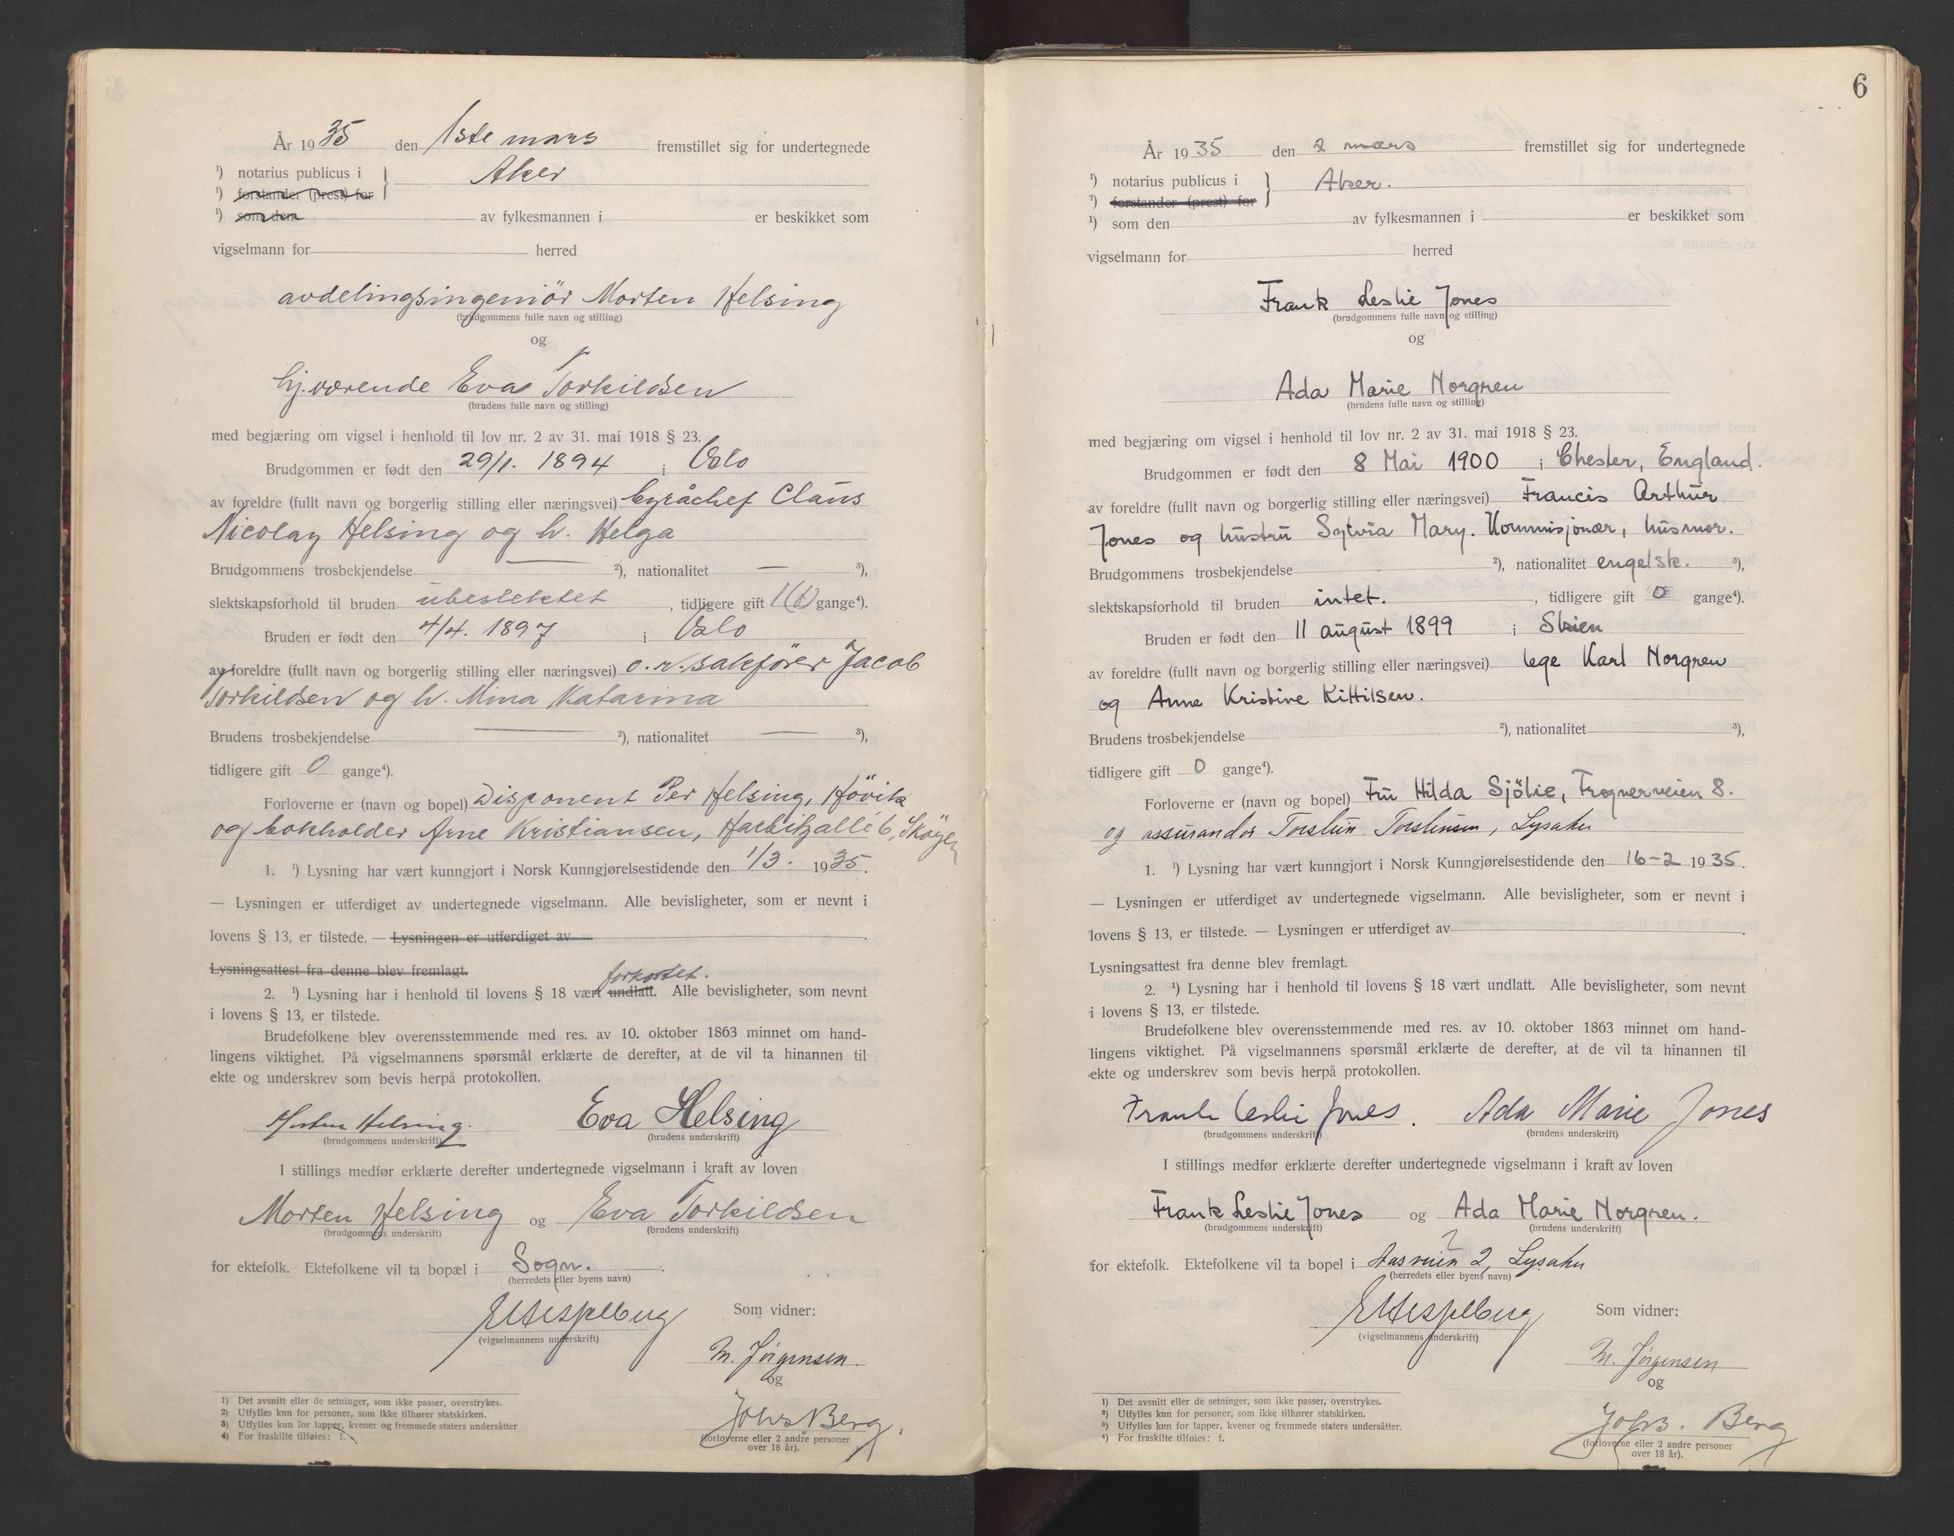 År 1935 den 1ste mars fremstillet sig for undertegnede
¹) notarius publicus i Aker
¹) forstander (prest) for
¹) som den av fylkesmannen i er beskikket som
vigselmann for herred
avdelingsingeniör Morten Helsing
(brudgommens fulle navn og stilling)
og
hj.værende Eva Torkildsen
(brudens fulle navn og stilling)
med begjæring om vigsel i henhold til lov nr. 2 av 31. mai 1918 § 23.
Brudgommen er født den 29/1. 1894 i Oslo
av foreldre (fullt navn og borgerlig stilling eller næringsvei) byråchef Claus
Nicolay Helsing og h. Helga
Brudgommens trosbekjendelse — ²), nationalitet — ³),
slektskapsforhold til bruden ubeslektet, tidligere gift 1(f) gange⁴).
Bruden er født den 4/4. 1897 i Oslo
av foreldre (fullt navn og borgerlig stilling eller næringsvei) o.r.sakfører Jacob
Torkildsen og h. Mina Katarina
Brudens trosbekjendelse — ²), nationalitet — ³),
tidligere gift 0 gange⁴).
Forloverne er (navn og bopel) Disponent Per Helsing, Hövik
og bokholder Arne Kristiansen, Harbitzallé 6, Sköyen
1. ¹) Lysning har vært kunngjort i Norsk Kunngjørelsestidende den 1/3. 1935.
— Lysningen er utferdiget av undertegnede vigselmann. Alle bevisligheter, som er nevnt i
lovens § 13, er tilstede. — Lysningen er utferdiget av
Lysningsattest fra denne blev fremlagt. forkortet.
2. ¹) Lysning har i henhold til lovens § 18 vært undlatt. Alle bevisligheter, som nevnt
i lovens § 13, er tilstede.
Brudefolkene blev overensstemmende med res. av 10. oktober 1863 minnet om hand-
lingens viktighet. På vigselmannens spørsmål erklærte de derefter, at de vil ta hinannen til
ekte og underskrev som bevis herpå protokollen.
Morten Helsing. Eva Helsing
(brudgommens underskrift) (brudens underskrift)
I stillings medfør erklærte derefter undertegnede vigselmann i kraft av loven
Morten Helsing og Eva Torkildsen
(brudgommens underskrift) (brudens underskrift)
for ektefolk. Ektefolkene vil ta bopæl i Sogn.
(herredets eller byens navn)
Som vidner:
(vigselmannens underskrift)
M. Jörgensen
og
Johs Berg.
(forloverne eller 2 andre personer
over 18 år).
¹) Det avsnitt eller de setninger, som ikke passer, overstrykes.
²) Utfylles kun for personer, som ikke tilhører statskirken.
³) Utfylles kun for lapper, kvener og fremmede staters undersåtter
⁴) For fraskilte tilføies: f.
6
År 1935 den 2 mars fremstillet sig for undertegnede
¹) notarius publicus i Aker.
¹) forstander (prest) for
¹) som den av fylkesmannen i er beskikket som
vigselmann for herred
Frank Leslie Jones
(brudgommens fulle navn og stilling)
og
Ada Marie Norgren
(brudens fulle navn og stilling)
med begjæring om vigsel i henhold til lov nr. 2 av 31. mai 1918 § 23.
Brudgommen er født den 8 Mai 1900 i Chester, England.
av foreldre (fullt navn og borgerlig stilling eller næringsvei) Francis Arthur
Jones og hustru Sylvia Mary. Kommisjonær, husmor.
Brudgommens trosbekjendelse ²), nationalitet engelsk. ³),
slektskapsforhold til bruden intet., tidligere gift 0 gange⁴).
Bruden er født den 11 august 1899 i Skien
av foreldre (fullt navn og borgerlig stilling eller næringsvei) lege Karl Norgren
og Anne Kristine Kittilsen.
Brudens trosbekjendelse ²), nationalitet ³),
tidligere gift 0 gange⁴).
Forloverne er (navn og bopel) Fru Hilda Sjölie, Frognerveien 8.
og assurandör Torstein Torstensen, Lysaker
1. ¹) Lysning har vært kunngjort i Norsk Kunngjørelsestidende den 16-2 1935.
— Lysningen er utferdiget av undertegnede vigselmann. Alle bevisligheter, som er nevnt i
lovens § 13, er tilstede. — Lysningen er utferdiget av
Lysningsattest fra denne blev fremlagt.
2. ¹) Lysning har i henhold til lovens § 18 vært undlatt. Alle bevisligheter, som nevnt
i lovens § 13, er tilstede.
Brudefolkene blev overensstemmende med res. av 10. oktober 1863 minnet om hand-
lingens viktighet. På vigselmannens spørsmål erklærte de derefter, at de vil ta hinannen til
ekte og underskrev som bevis herpå protokollen.
Frank Leslie Jones. Ada Marie Jones
(brudgommens underskrift) (brudens underskrift)
I stillings medfør erklærte derefter undertegnede vigselmann i kraft av loven
Frank Leslie Jones og Ada Marie Norgren.
(brudgommens underskrift) (brudens underskrift)
for ektefolk. Ektefolkene vil ta bopel i Aasveien 2, Lysaker
(herredets eller byens navn)
Som vidner:
(vigselmannens underskrift)
M. Jörgensen
og
Johs. Berg
(forloverne eller 2 andre personer
over 18 år).
¹) Det avsnitt eller de setninger, som ikke passer, overstrykes.
²) Utfylles kun for personer, som ikke tilhører statskirken.
³) Utfylles kun for lapper, kvener og fremmede staters undersåtter.
⁴) For fraskilte tilføies: f.